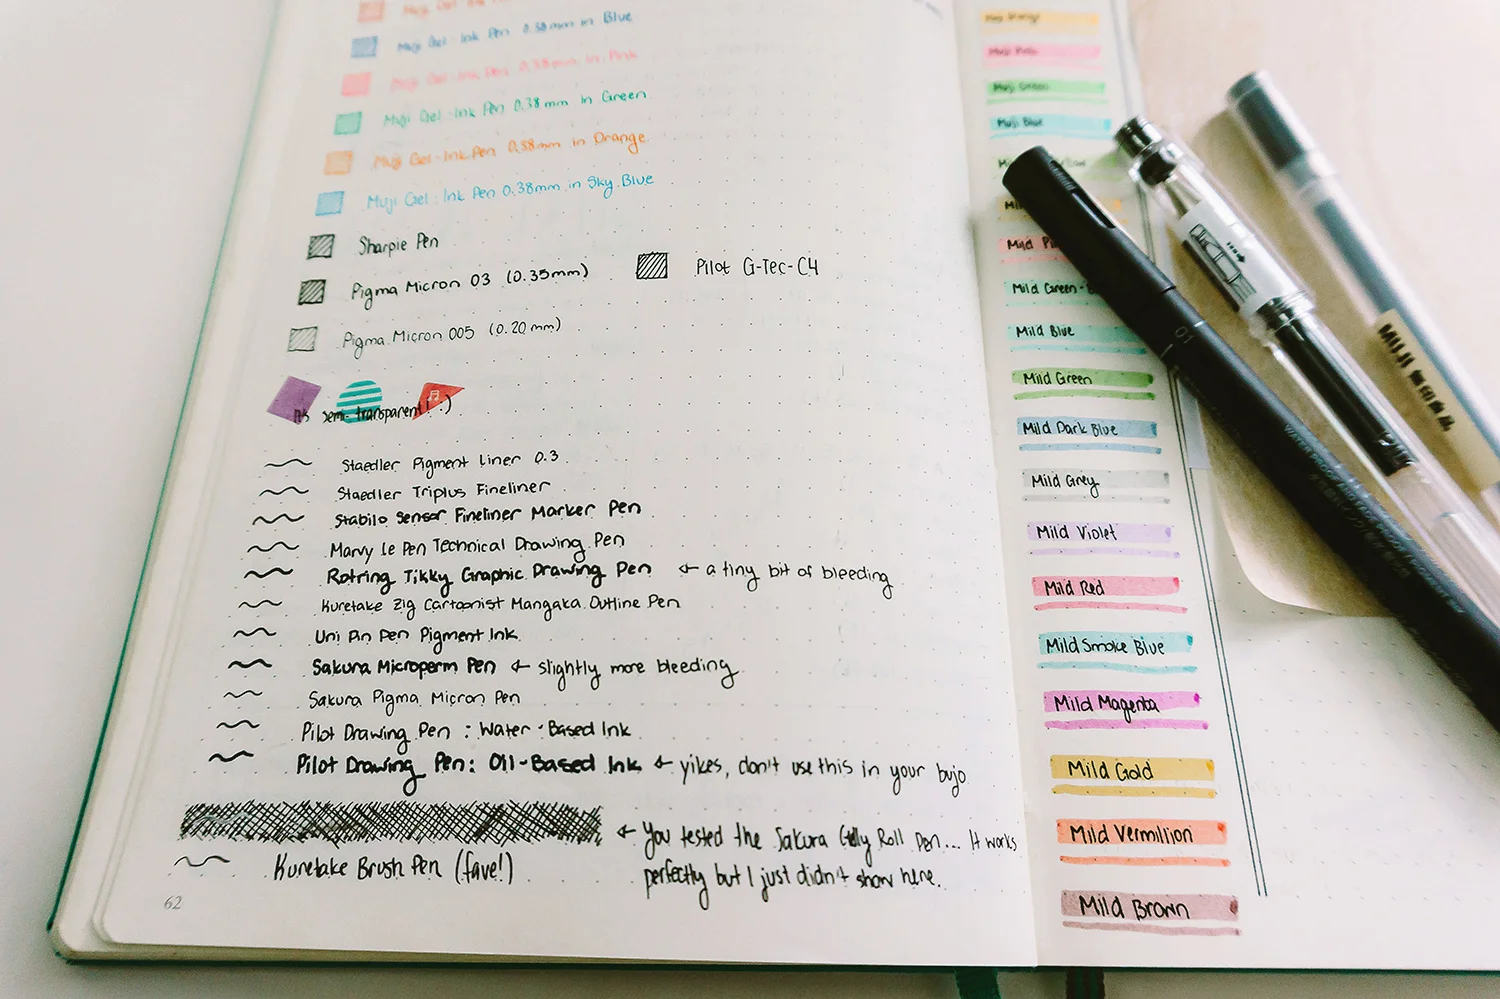 Muji Gel-Ink Pen 0.38mm in Blue
Muji Gel-Ink Pen 0.38mm in Pink
Muji Gel-Ink Pen 0.38mm in Green
Muji Gel-Ink Pen 0.38mm in Orange
Muji Gel-Ink Pen 0.38mm in Sky Blue
Sharpie Pen
Pigma Micron 03 (0.35mm)
Pilot G-Tec-C4
Pigma Micron 005 (0.20mm)
semi-transparent(:)
Staedler Pigment Liner 0.3
Staedler Triplus Fineliner
Stabilo Sensor Fineliner Marker Pen
Marvy Le Pen Technical Drawing Pen
Rotring Tikky Graphic Drawing Pen ← a tiny bit of bleeding
Kuretake Zig Cartoonist Mangaka Outline Pen
Uni Pin Pen Pigment Ink
Sakura Microperm Pen ← slightly more bleeding
Sakura Pigma Micron Pen
Pilot Drawing Pen: Water-Based Ink
Pilot Drawing Pen: Oil-Based Ink ← yikes, don't use this in your bujo
← You tested the Sakura Gelly Roll Pen... It works
perfectly but I just didn't show here.
Kuretake Brush Pen (fave!)
62
Muji Green
Muji Blue
Mild
Mild Green-
Mild Blue
Mild Green
Mild Dark Blue
Mild Grey
Mild Violet
Mild Red
Mild Smoke Blue
Mild Magenta
Mild Gold
Mild Vermillion
Mild Brown
01
MUJI 無印良品